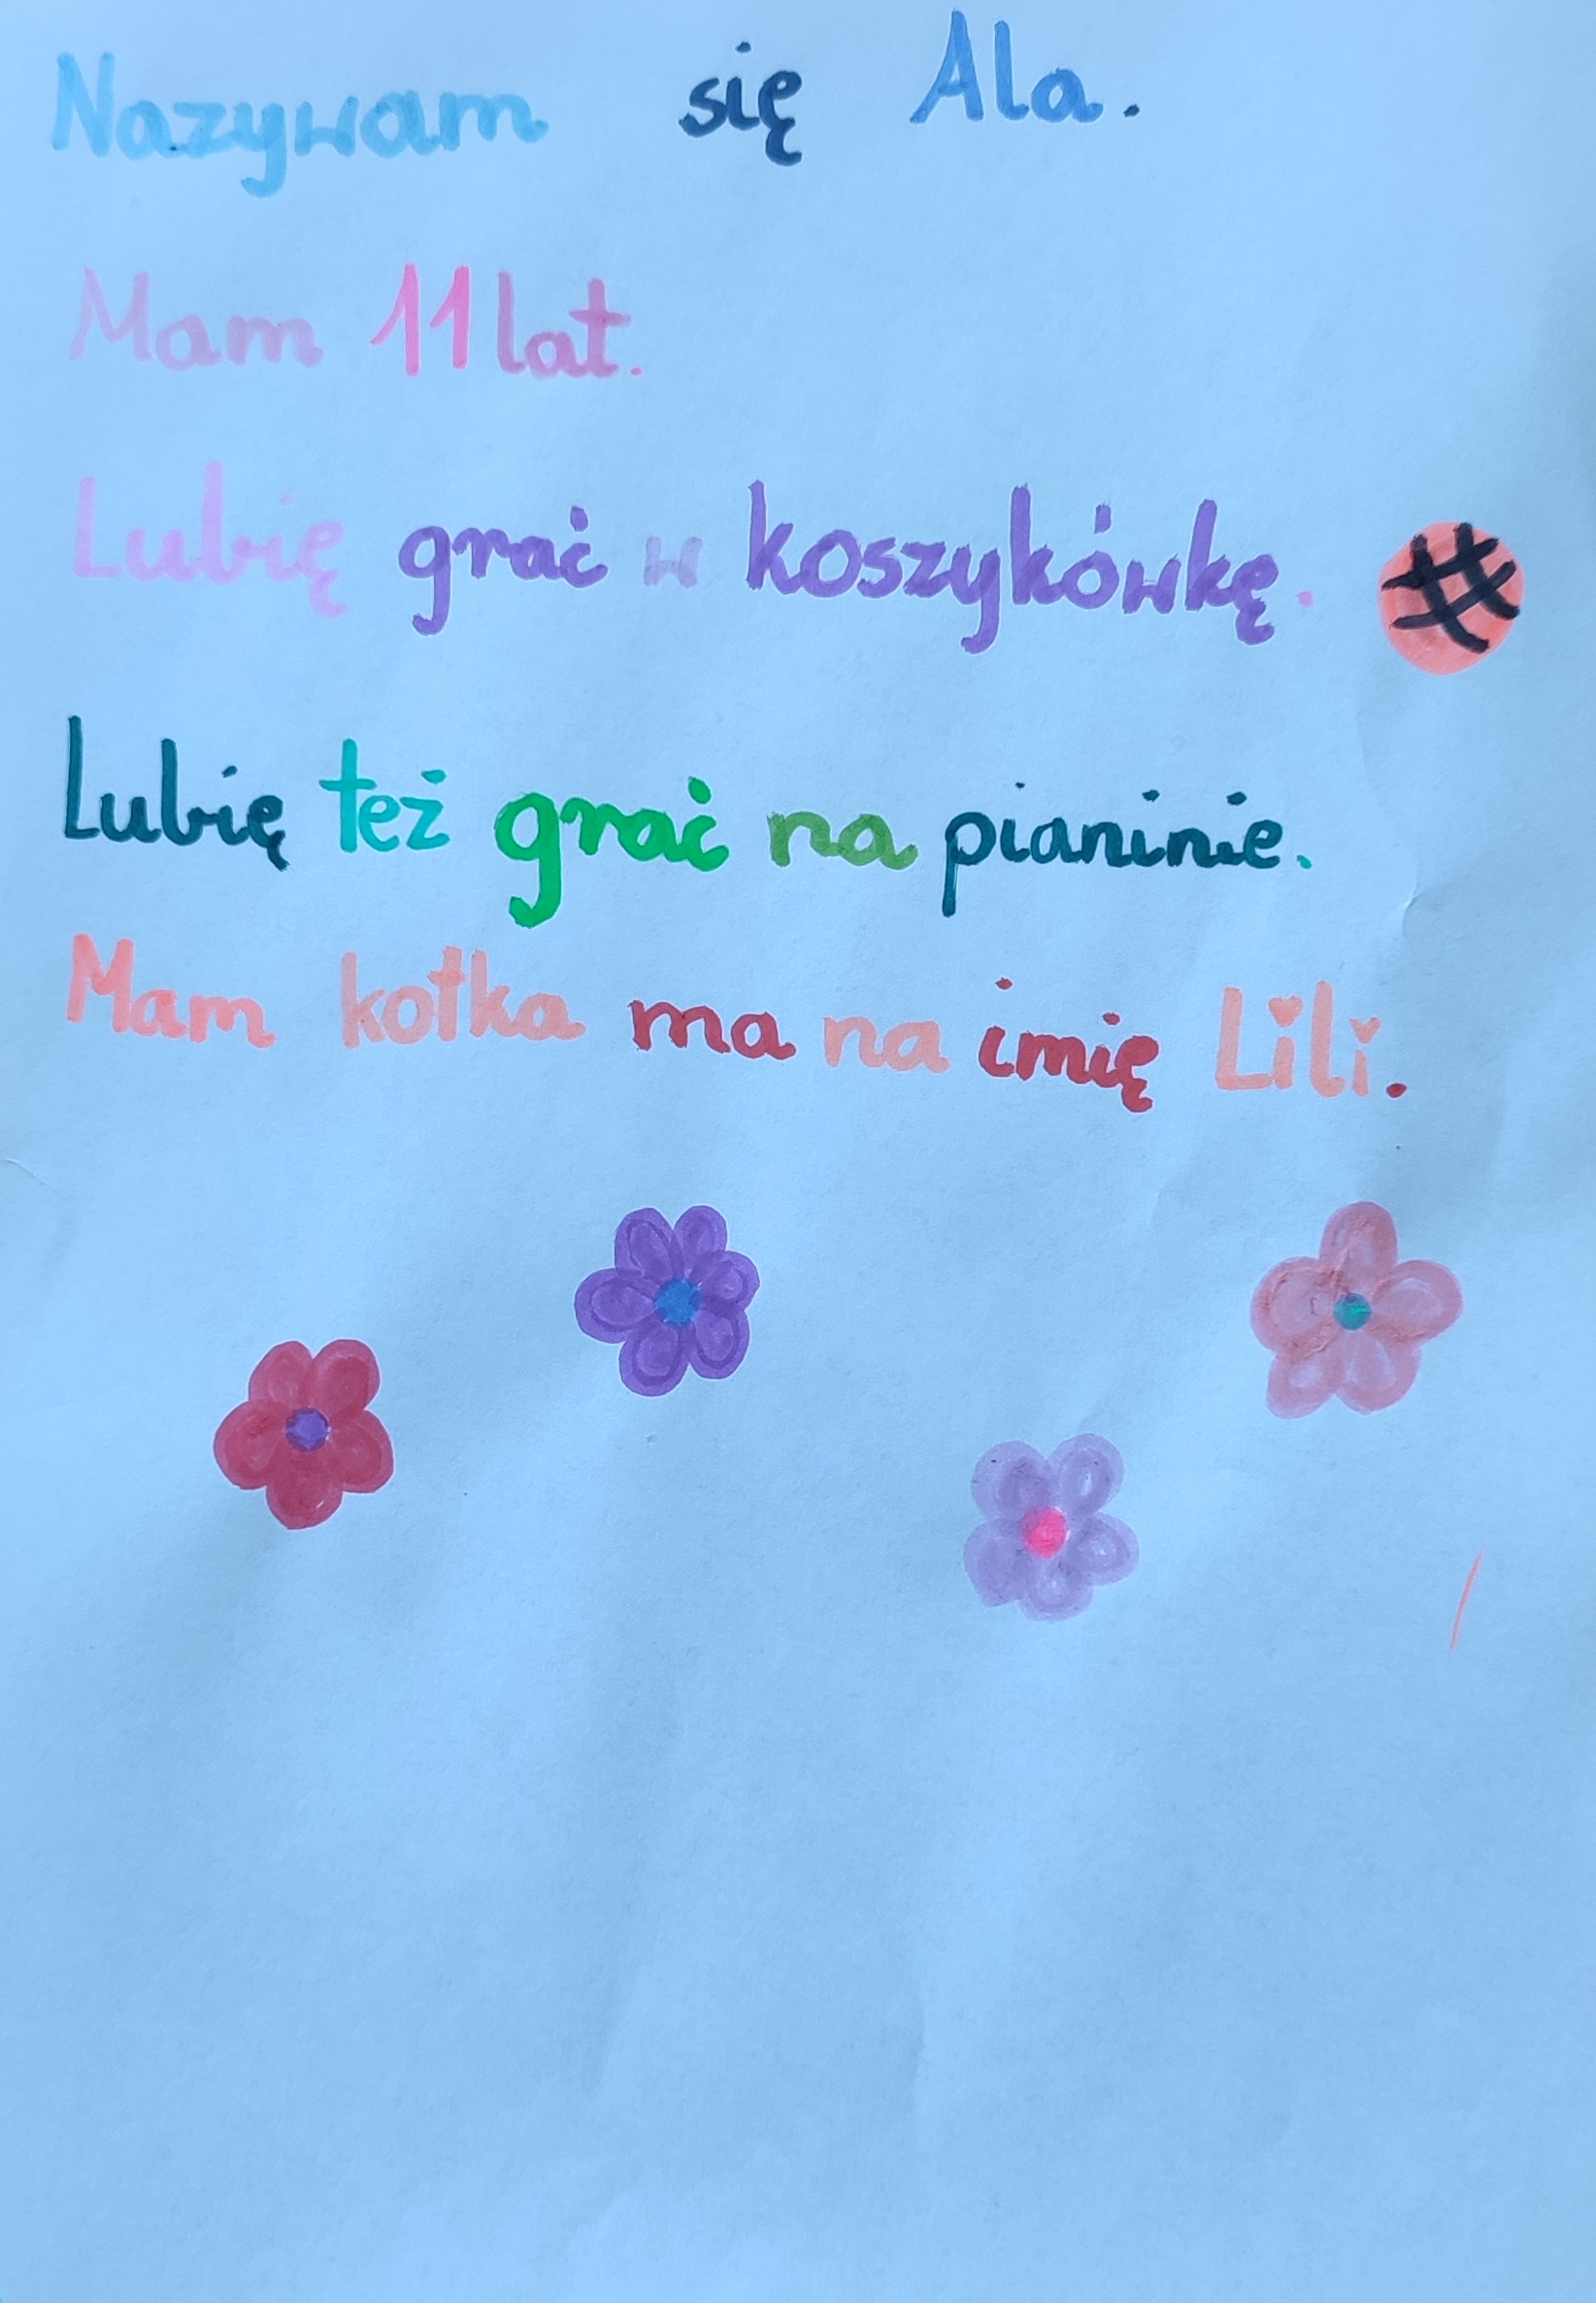 Nazywam się Ala.
Mam 11 lat.
Lubię grać w koszykówkę.
Lubię też grać na pianinie.
Mam kotka ma na imię Lili.